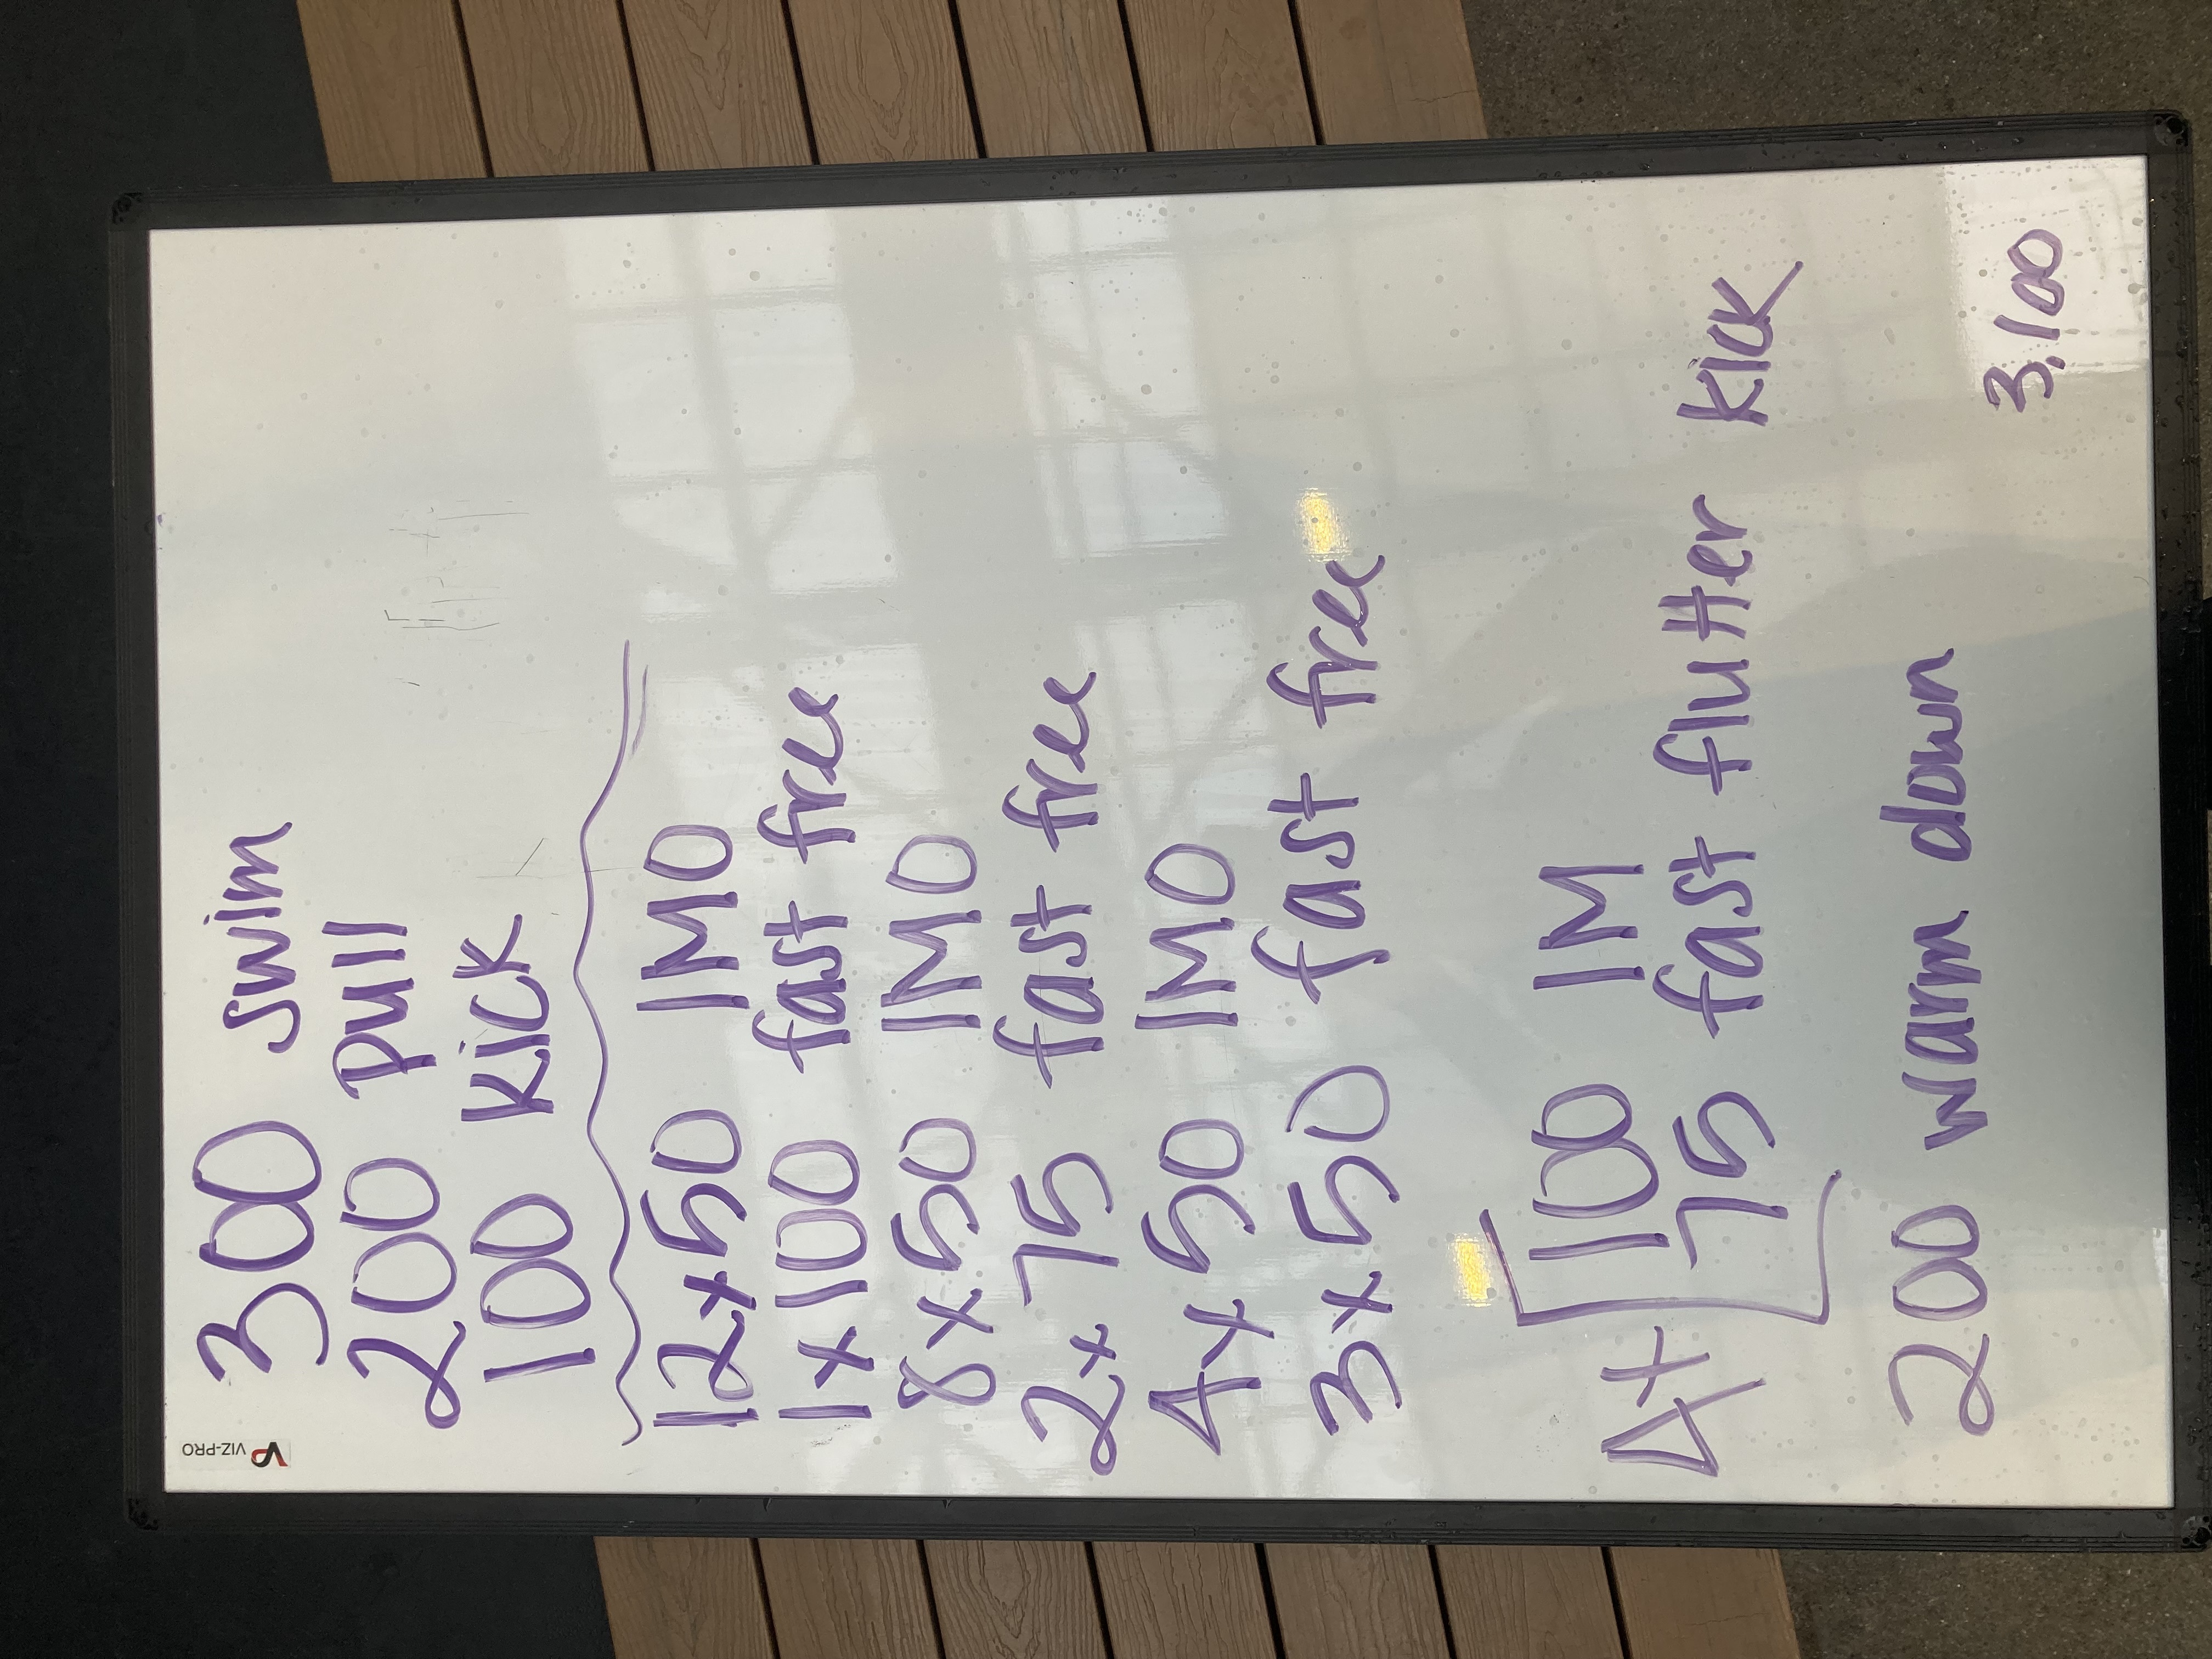 VP VIZ-PRO
300 swim
200 pull
100 kick
12x50 IMO
1x100 fast free
8x50 IMO
2x75 fast free
4x50 IMO
3x50 fast free
4x [100 IM
75 fast flutter kick
200 warm down
3,100